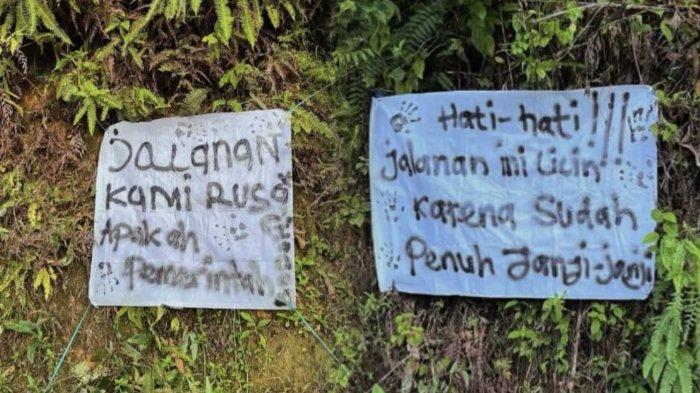 Jalanan
Kami Rusa
Apakah
Pemerintah
Hati-hati!!!
Jalanan ini Licin
Karena Sudah
Penuh Janji-Janji